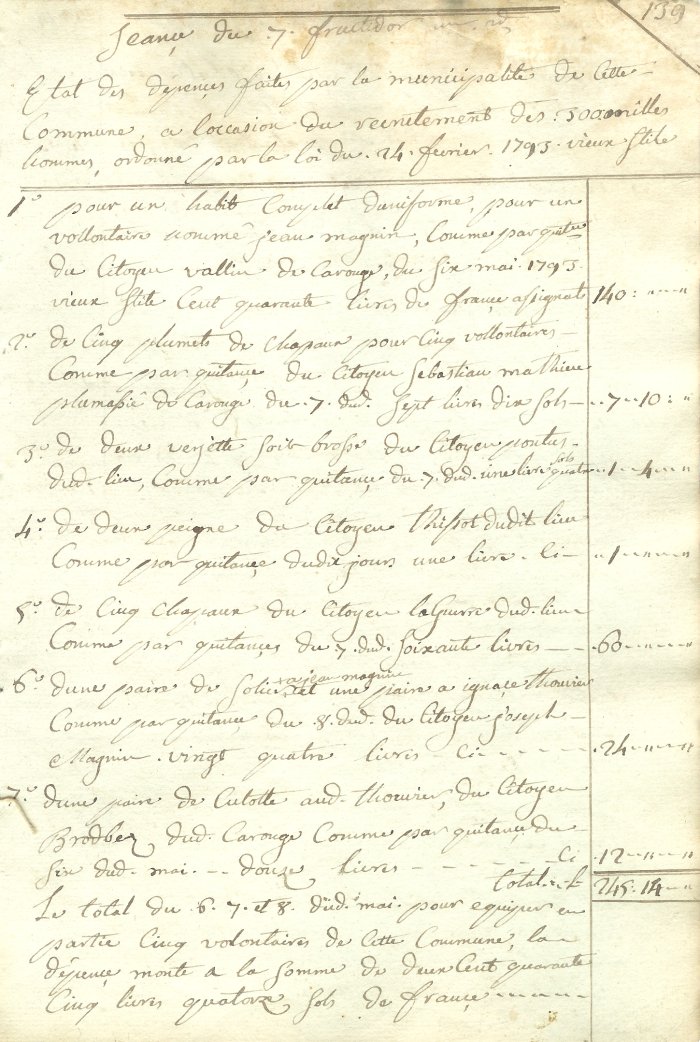 139
Seançe du 7. fructidor
Etat des dépençes faites par la municipalité de Cette
Commune, a loccasion du recrutement des 300 milles
hommes, ordonné par la loi du 24. fevrier. 1793. vieux stile
1° pour un habit Complet duniforme, pour un
vollontaire nommé jean magnin, Comme par quitce
du Citoyen vallin de Carouge, du six mai. 1793.
vieux stile Cent quarante livres de françe assignat 140: " "
2° de Cinq plumets de chapaux pour Cinq vollontaires
Comme par quitançe du Citoyen Sebastian mathieu
plumasié de Carouge du 7. dud. Sept livres dix sols 7 " 10: "
3° de deux verjette soit brosse du Citoyen pontus
dud. lieu, Comme par quitançe du 7. dud. une livre quatre sols " 1 " 4 "
4° de deux peigne du Citoyen thissot dudit lieu
Comme par quitançe dudit jours une livre. Ci " 1 " " "
5° de Cinq chapaux du Citoyen laGuerre dud. lieu
Comme par quitançes du 7. dud. Soixante livres 60 " "
6° dune paire de Soliers a jean magnin et une paire a ignaçe thouvier
Comme par quitançe du 8. dud. du Citoyen joseph
Magnin. vingt quatre livres Ci 24 " " "
7° dune paire de Culotte aud. thouvier, du Citoyen
Brodbek dud. Carouge Comme par quitançe du
six dud. mai. douze livres Ci 12 " " "
total 245. 14 "
Le total du 6. 7. et 8. dud. mai. pour equiper en
partie Cinq volontaires de Cette Commune, la
dépençe monte a la Somme de deux Cent quarante
Cinq livres quatorze sols de françe